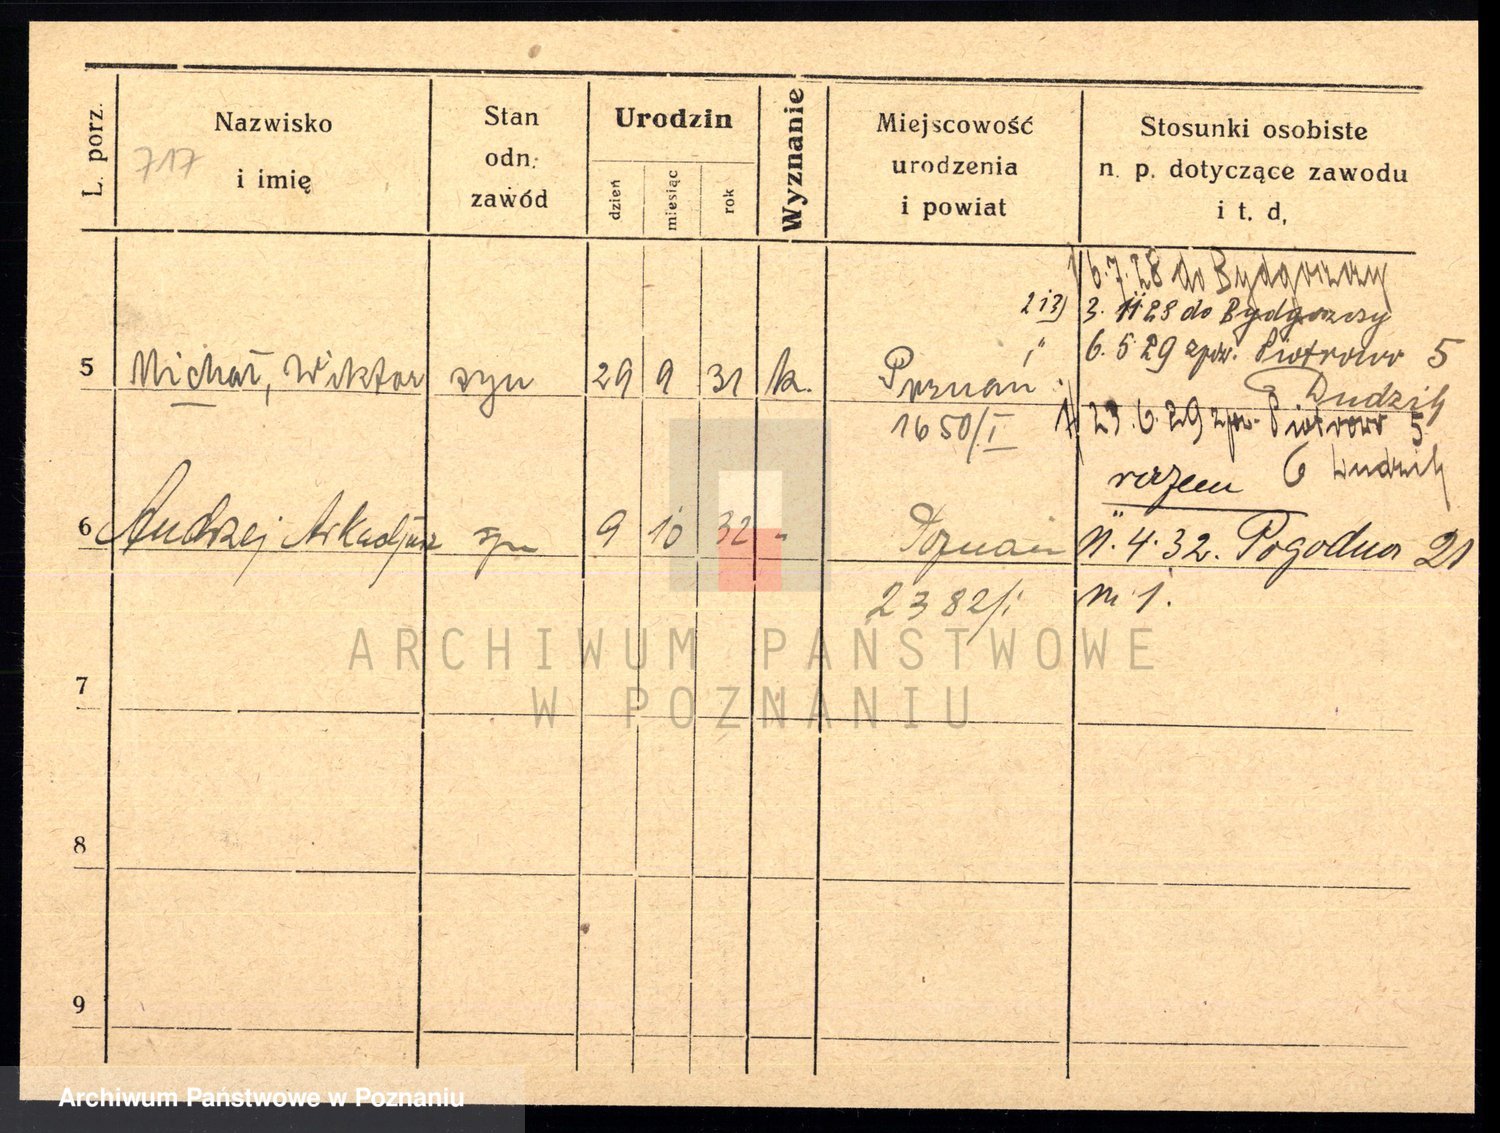 L. porz.
Nazwisko
i imię
717
Stan
odn.
zawód
Urodzin
dzień
miesiąc
rok
Wyznanie
Miejscowość
urodzenia
i powiat
Stosunki osobiste
n. p. dotyczące zawodu
i t. d.
6.7.28 do Bydgoszczy
2 i 3) 3.11.28 do Bydgoszczy
6.5.29 zpow. Piotrowo 5
Dudzik
5 Michał, Wiktor syn 29 9 31 k. Poznań
1650/I
1) 23.6.29 zpow. Piotrowo 5
Dudzik
razem
6 Andrzej Arkadjusz syn 9 10 32 - Poznań
11.4.32. Pogodna 21
m 1.
2382/i
7
8
9
ARCHIWUM PAŃSTWOWE
W POZNANIU
Archiwum Państwowe w Poznaniu